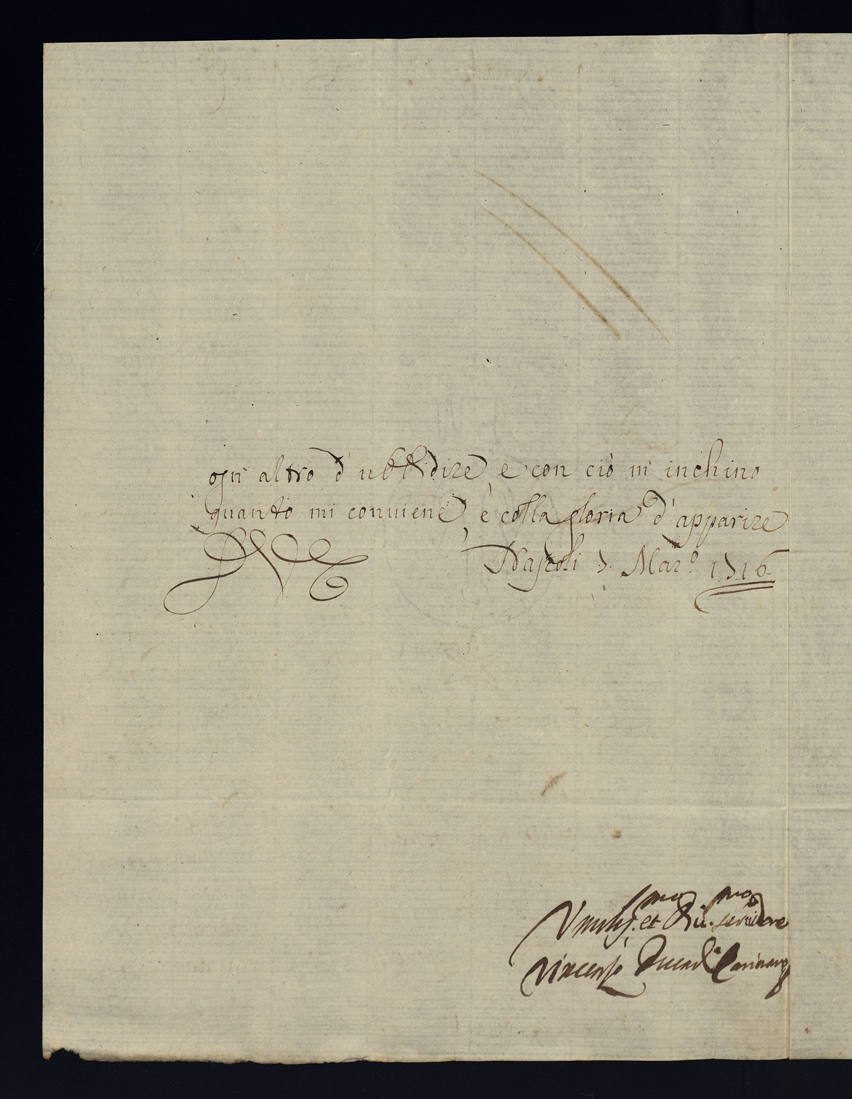 ogn' altro d'ubbidire, e con ciò m'inchino
quanto mi conviene, e colla gloria d'apparire
D V E Napoli 7. Mar.º 1716.
Umilis.mo et Div.mo servidore
Vincenzo Duca di Casinaro